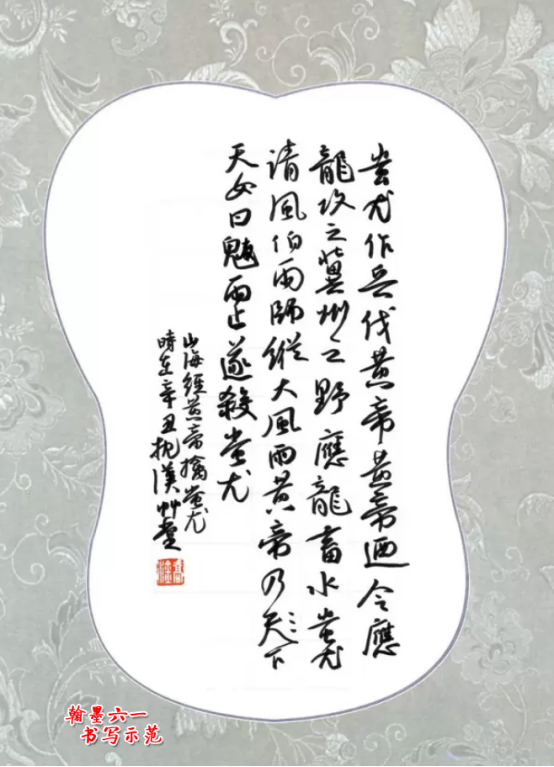 蚩尤作兵伐黄帝黄帝迺令應
龍攻之冀州之野應龍畜水蚩尤
請風伯雨師縱大風雨黄帝乃天下
天女曰魃雨止遂殺蚩尤
山海經黄帝擒蚩尤
時在辛丑挹漢艸堂
翰墨六一
书写示范